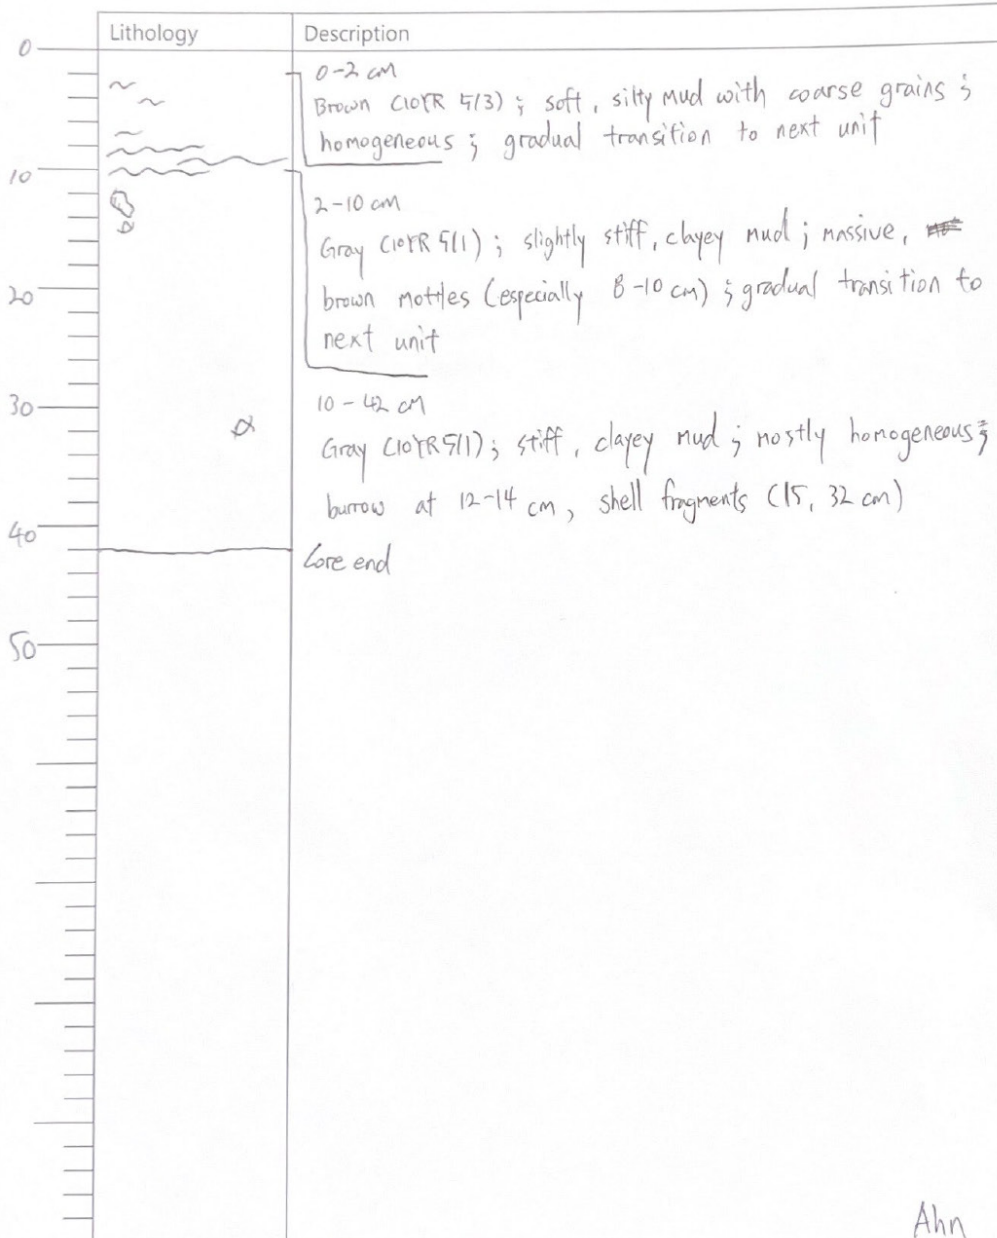 Lithology Description
0
0-2 cm
Brown (10YR 5/3) ; soft, silty mud with coarse grains ;
homogeneous ; gradual transition to next unit
10
2-10 cm
Gray (10YR 5/1) ; slightly stiff, clayey mud ; massive,
brown mottles (especially 8-10 cm) ; gradual transition to
next unit
20
30
10-42 cm
Gray (10YR 5/1) ; stiff, clayey mud ; mostly homogeneous ;
burrow at 12-14 cm, shell fragments (15, 32 cm)
40
Core end
50
Ahn